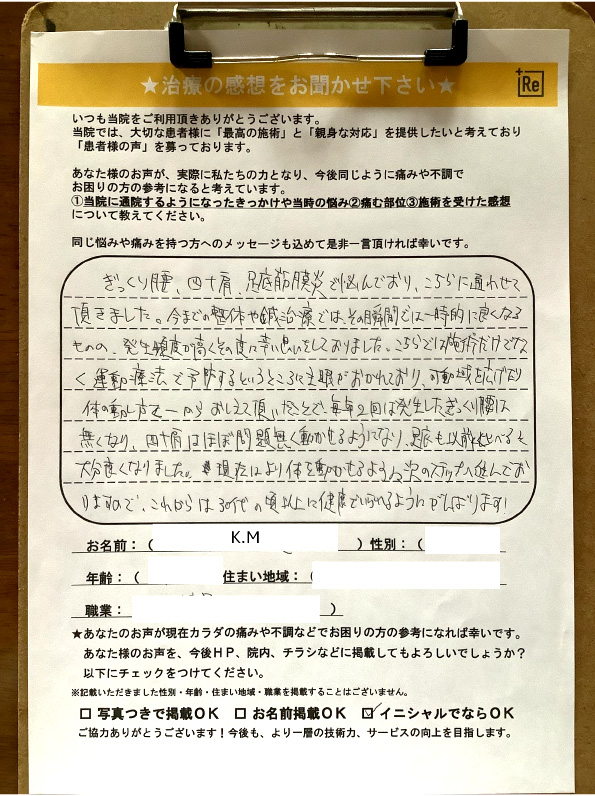 ★治療の感想をお聞かせ下さい★
Re
いつも当院をご利用頂きありがとうございます。
当院では、大切な患者様に「最高の施術」と「親身な対応」を提供したいと考えており
「患者様の声」を募っております。
あなた様のお声が、実際に私たちの力となり、今後同じように痛みや不調で
お困りの方の参考になると考えています。
①当院に通院するようになったきっかけや当時の悩み②痛む部位③施術を受けた感想
について教えてください。
同じ悩みや痛みを持つ方へのメッセージも込めて是非一言頂ければ幸いです。
ぎっくり腰、四十肩、足底筋膜炎で悩んでおり、こちらに通わせて
頂きました。今までの整体や鍼治療では、その瞬間では一時的に良くなる
ものの、発生頻度が高くその度に辛い思いをしておりました。こちらでは施術だけでな
く運動療法で予防するというところに主眼がおかれており、可動域を広げたり
体の動かし方を一からおしえて頂いたことで、毎年2回は発生したぎっくり腰は
無くなり、四十肩はほぼ問題無く動かせるようになり、足底も以前と比べると
大分良くなりました。現在はより体を動かせるように次のステップへ進んでお
りますので、これからは30代の頃以上に健康でいられるようにがんばります!
お名前:( K.M )性別:(
年齢:( 住まい地域:(
職業: )
★あなたのお声が現在カラダの痛みや不調などでお困りの方の参考になれば幸いです。
あなた様のお声を、今後HP、院内、チラシなどに掲載してもよろしいでしょうか?
以下にチェックをつけてください。
※記載いただきました性別・年齢・住まい地域・職業を掲載することはございません。
□ 写真つきで掲載OK □ お名前掲載OK ☑ イニシャルでならOK
ご協力ありがとうございます!今後も、より一層の技術力、サービスの向上を目指します。